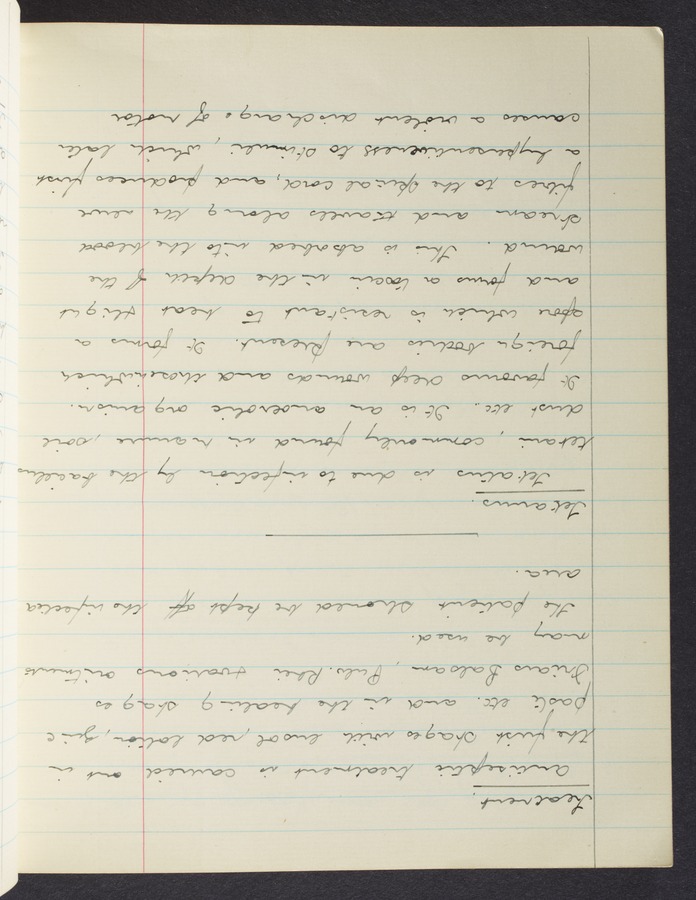 Treatment.
Antiseptic treatment is carried out in
the first stages with eusol, red lotion, zinc
paste etc. and in the healing stages
Friars Balsam, Pulv. Rhei various ointments
may be used.
The patient should be kept off the infected
area.
Tetanus.
Tetatus is due to infection by the bacillus
tetani, commonly found in manure, soil
dust etc. It is an anaerobic organism.
It favours deep wounds and those in which
foreign bodies are present. It forms a
spore which is resistant to heat & light
and forms a toxin in the depth of the
wound. This is absorbed into the blood
stream and travels along the nerve
fibres to the spinal cord, and produces first
a hypersensitiveness to stimuli, which later
causes a violent discharge of motor